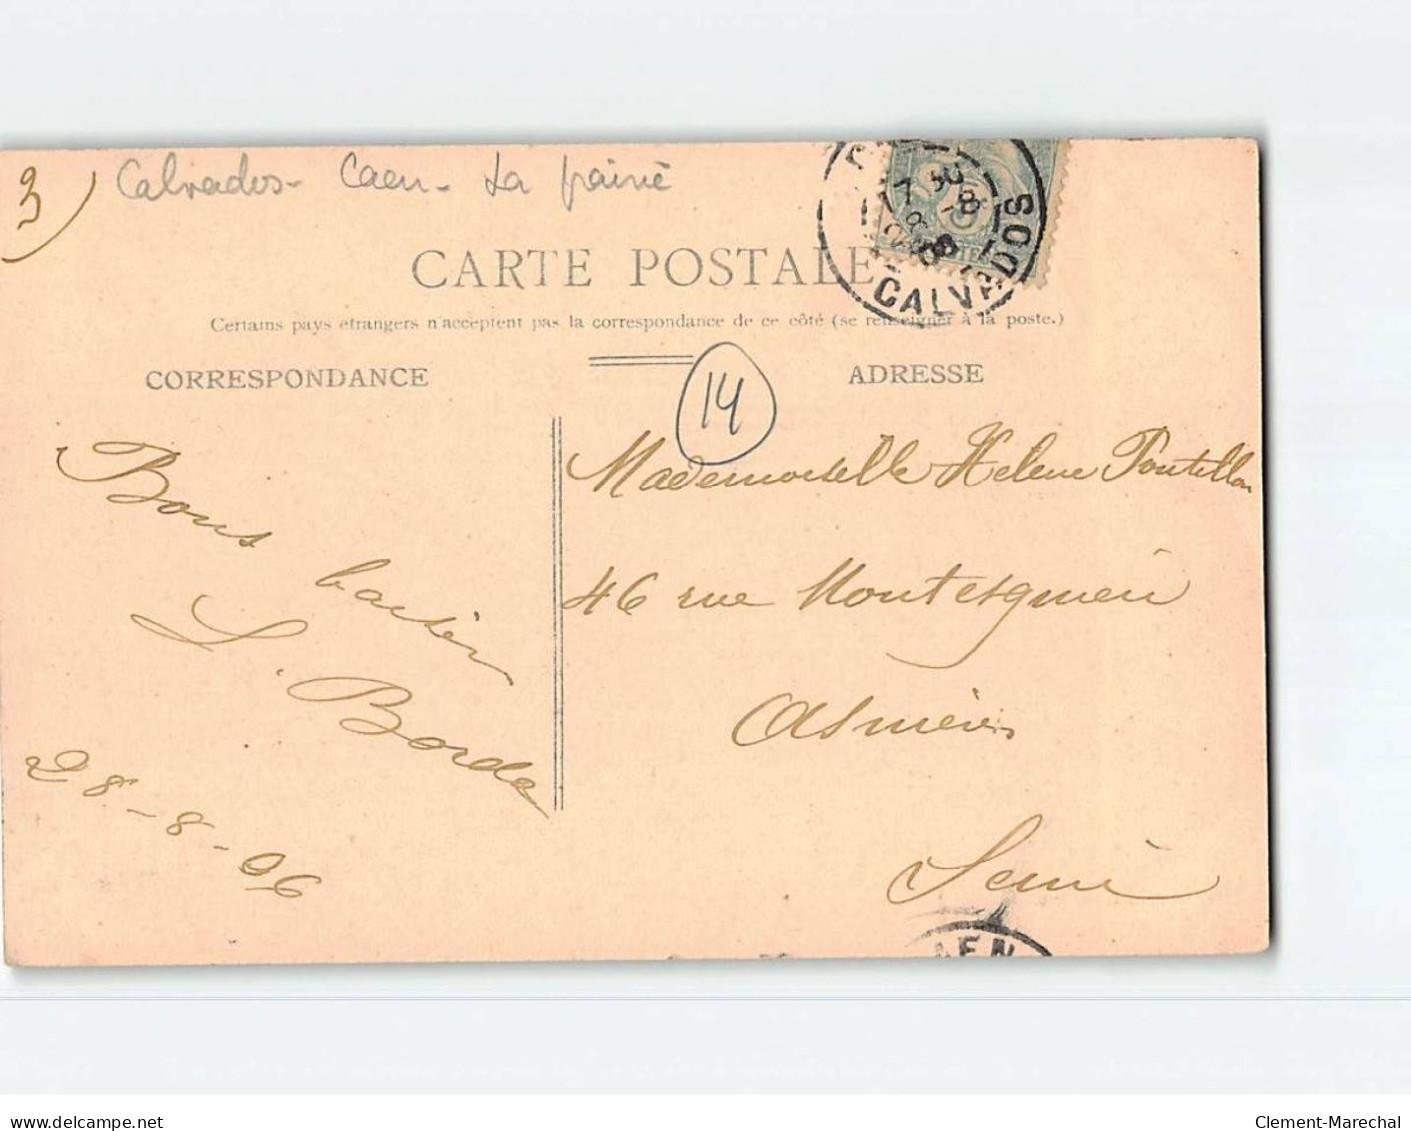 3)
Calvados - Caen - La prairie
CALVADOS
CARTE POSTALE
Certains pays étrangers n'acceptent pas la correspondance de ce côté (se renseigner à la poste.)
CORRESPONDANCE
ADRESSE
14
Bons baisers
S. Borda
28-8-06
Mademoiselle Helene Pontillon
46 rue Montesquieu
Asnières
Seine
CAEN
delcampe.net
Clement-Marechal